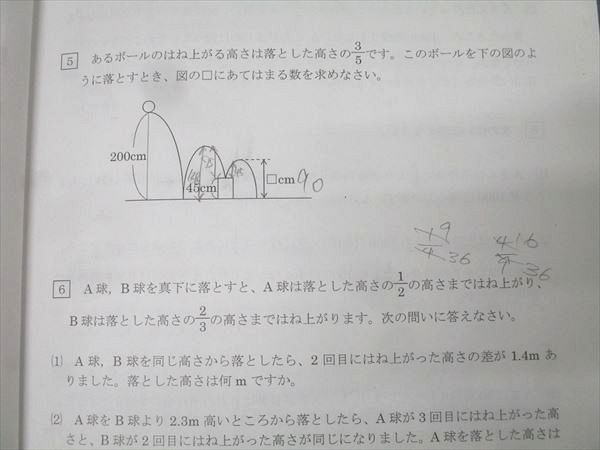 5 あるボールのはね上がる高さは落とした高さの3/5です。このボールを下の図のよ
うに落とすとき、図の□にあてはまる数を求めなさい。
200cm
45cm
□cm 90
19
4 36
416
36
6 A球，B球を真下に落とすと、A球は落とした高さの1/2の高さまではね上がり、
B球は落とした高さの2/3の高さまではね上がります。次の問いに答えなさい。
(1) A球，B球を同じ高さから落としたら、2回目にはね上がった高さの差が1.4mあ
りました。落とした高さは何mですか。
(2) A球をB球より2.3m高いところから落としたら、A球が3回目にはね上がった高
さと、B球が2回目にはね上がった高さが同じになりました。A球を落とした高さは